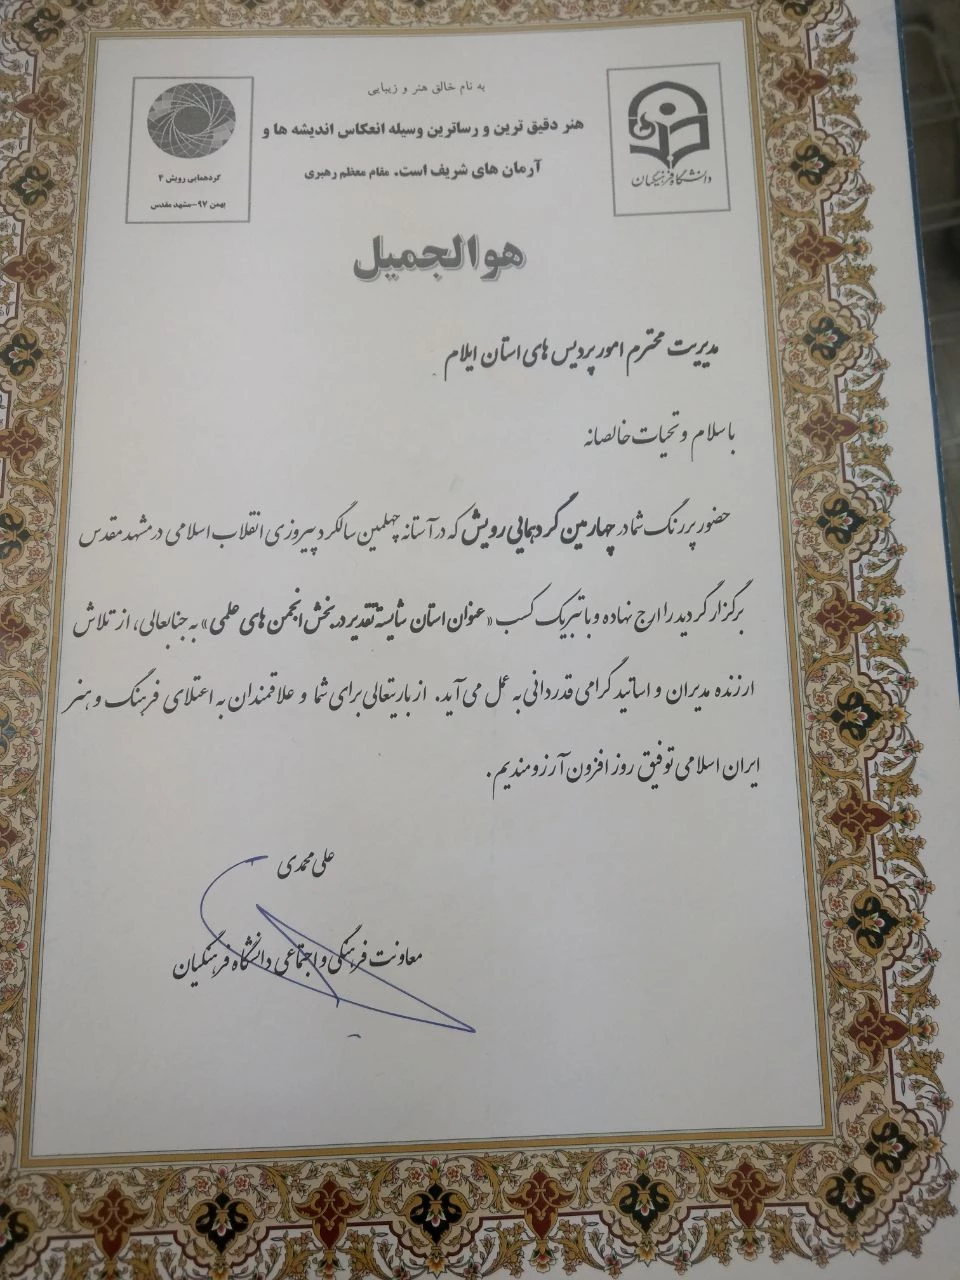 به نام خالق هنر و زیبایی
هنر دقیق ترین و رساترین وسیله انعکاس اندیشه ها و
آرمان های شریف است. مقام معظم رهبری
دانشگاه فرهنگیان
گردهمایی رویش ۴
بهمن ۹۷-مشهد مقدس
هوالجمیل
مدیریت محترم امور پردیس های استان ایلام
با سلام و تحیات خالصانه
حضور پررنگ شما در چهارمین گردهمایی رویش که در آستانه چهلمین سالگرد پیروزی انقلاب اسلامی در مشهد مقدس
برگزار گردید را ارج نهاده و با تبریک کسب «عنوان استان شایسته تقدیر در بخش انجمن های علمی» به جنابعالی، از تلاش
ارزنده مدیران و اساتید گرامی قدردانی به عمل می آید. از باریتعالی برای شما و علاقمندان به اعتلای فرهنگ و هنر
ایران اسلامی توفیق روز افزون آرزومندیم.
علی محمدی
معاونت فرهنگی و اجتماعی دانشگاه فرهنگیان